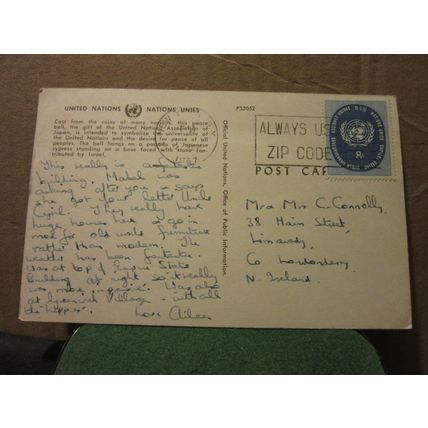 UNITED NATIONS NATIONS UNIES
Cast from the coins of many nations, this peace
bell, the gift of the United Nations Association of
Japan, is intended to symbolize the universality of
the United Nations and the desire for peace of all
peoples. The bell hangs on a pagoda of Japanese
cypress standing on a base faced with stone con-
tributed by Israel.
P32052
Official United Nations, Office of Public Information.
ALWAYS USE
ZIP CODE
UNITED NATIONS
8c
POST CARD
This really is a
building. Mabel was
asking after you & says
she got your letter Uncle
Cyril. They really have
huge houses here & go in
most for old world furniture
rather than modern. The
weather has been fantastic.
Was at top of Empire State
Building at night so it really
was more impressive. Was also
at Greenwich Village - with all
the hippies.
Love Aileen
Mr & Mrs C. Connolly,
38 Main Street,
Limavady,
Co Londonderry
N. Ireland.